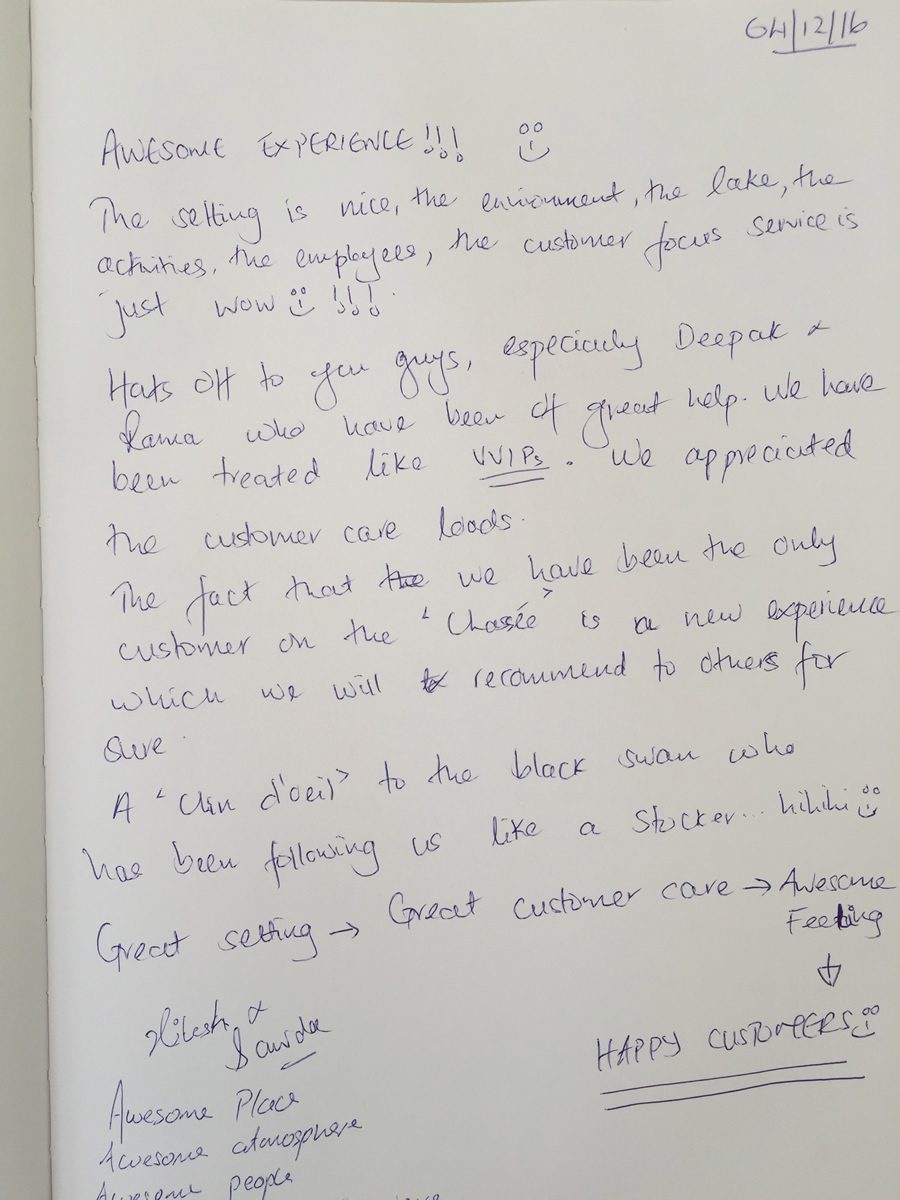 04/12/16
AWESOME EXPERIENCE!!!
The setting is nice, the environment, the lake, the
activities, the employees, the customer focus service is
just wow !!!
Hats off to you guys, especially Deepak &
Rama who have been of great help. We have
been treated like VVIPs. We appreciated
the customer care loads.
The fact that the we have been the only
customer on the 'Chasée' is a new experience
which we will to recommend to others for
sure.
A 'Clin d'oeil' to the black swan who
has been following us like a stocker... hihihi
Great setting → Great customer care → Awesome
Feeling
↓
HAPPY CUSTOMERS
&
Awesome Place
Awesome atmosphere
Awesome people